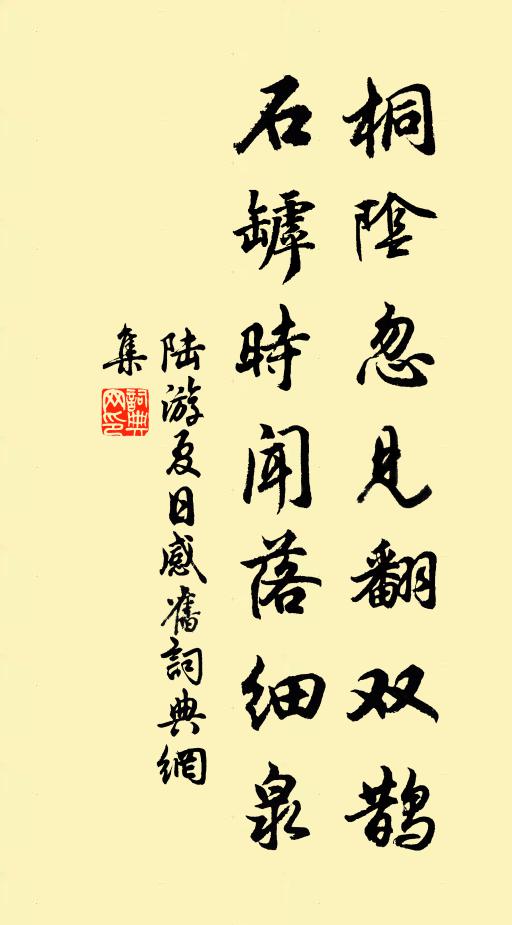 桐陰忽见翻双鹊
石罅時闻落细泉
陆游夏日感舊詞典網
集
詞典
网印